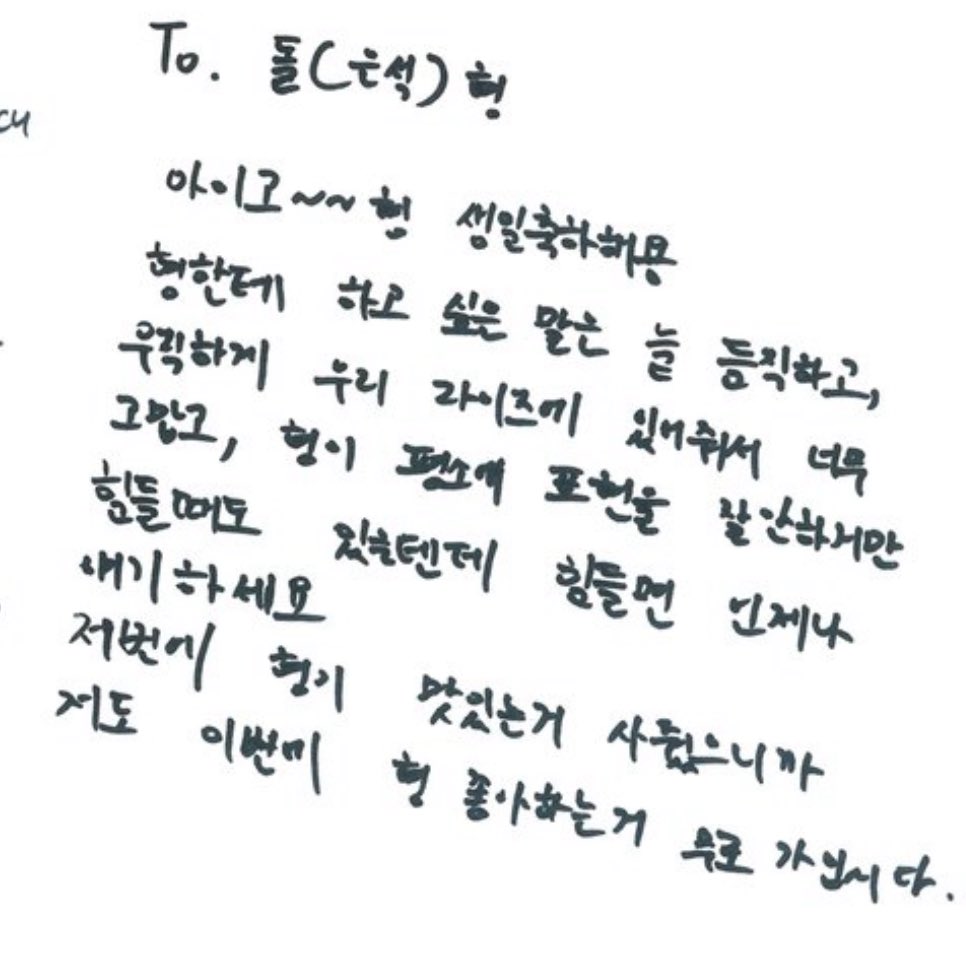 To. 돌(은석) 형
아이고~~ 형 생일축하해용
형한테 하고 싶은 말은 늘 듬직하고,
우직하게 우리 라이즈에 있어줘서 너무
고맙고, 형이 평소에 표현을 잘안하지만
힘들때도 있을텐데 힘들면 언제나
얘기하세요
저번에 형이 맛있는거 사줬으니까
저도 이번에 형 좋아하는거 무로 가보시다.